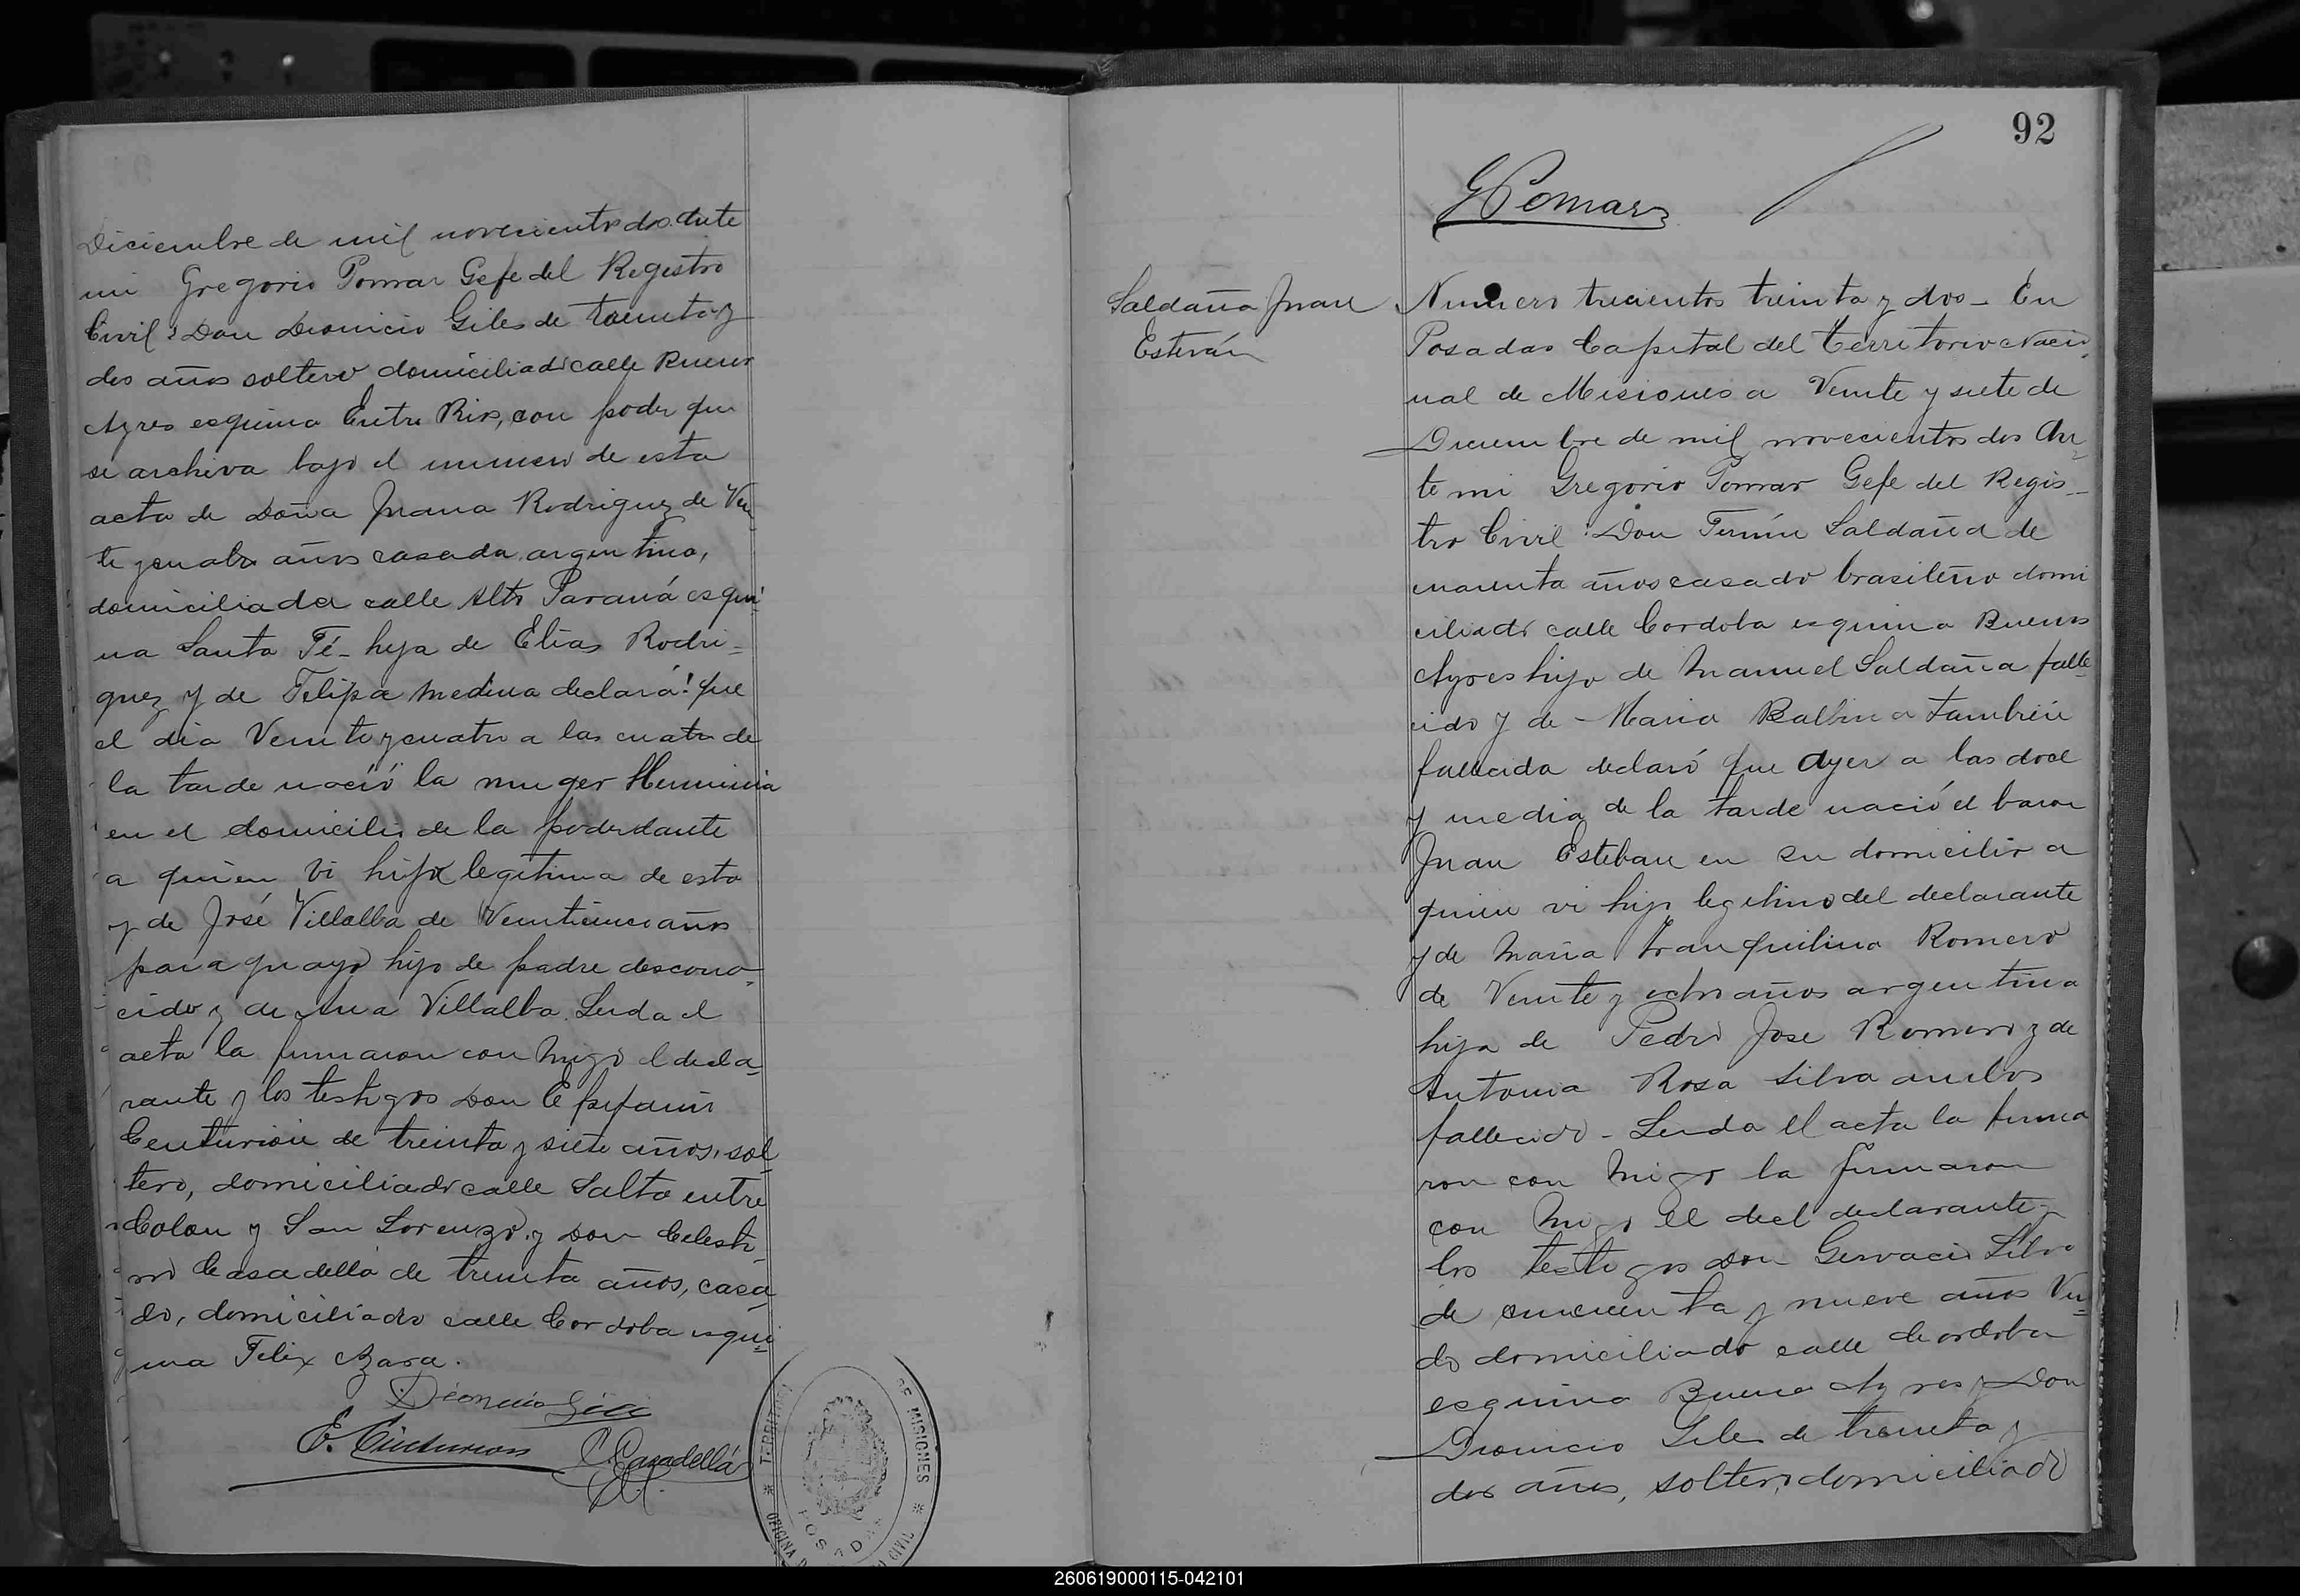 Diciembre de mil novecientos dos. Ante
mi Gregorio Pomar Gefe del Registro
Civil: Don Dionicio Giles de treinta y
dos años soltero domiciliado calle Buenos
Ayres esquina Entre Rios, con poder que
se archiva bajo el numero de esta
acta de Doña Juana Rodriguez de Vein
te y cuatro años casada argentina,
domiciliada calle Alto Paraná esqui
na Santa Fé - hija de Elias Rodri=
guez y de Felipa Medina declaró! que
el dia Veinte y cuatro a las cuatro de
la tarde nació la muger Herminia
en el domicilio de la poderdante
a quien vi hija legitima de esta
y de José Villalba de Veinticinco años
paraguayo hijo de padre descono-
cido y de Ana Villalba. Leida el
acta la firmaron con migo el decla-
rante y los testigos Don Epifanio
Centurión de treinta y siete años, sol
tero, domiciliado calle Salta entre
Colon y San Lorenzo y Don Celesti
no Casadellá de treinta años, casa
do, domiciliado calle Cordoba esqui
na Felix Azara.
Dionicio Giles
E. Centurion C. Casadellá
TERRITORIO DE MISIONES
OFICINA CIVIL
POSADAS
92
G Pomar
Saldaña Juan
Esteván
Numero trecientos treinta y dos - En
Posadas Capital del Territorio Nacio
nal de Misiones a Veinte y siete de
Diciembre de mil novecientos dos An
te mi Gregorio Pomar Gefe del Regis-
tro Civil: Don Fermín Saldaña de
cuarenta años casado brasilero domi
ciliado calle Cordoba esquina Buenos
Ayres hijo de Manuel Saldaña falle
cido y de Maria Balbina también
fallecida declaró que Ayer a las doce
y media de la tarde nació el baron
Juan Esteban en su domicilio a
quien vi hijo legitimo del declarante
y de Maria Tranquilina Romero
de Veinte y ocho años argentina
hija de Pedro Jose Romero y de
Antonia Rosa Silva ambos
fallecido - Leida el acta la firma
ron con migo la firmaron
con migo el decl declarante y
los testigos Don Gervacio Silva
de cincuenta y nueve años Viu
do domiciliado calle Cordoba
esquina Buenos Ayres y Don
Dionicio Giles de treinta y
dos años, soltero, domiciliado
260619000115-042101